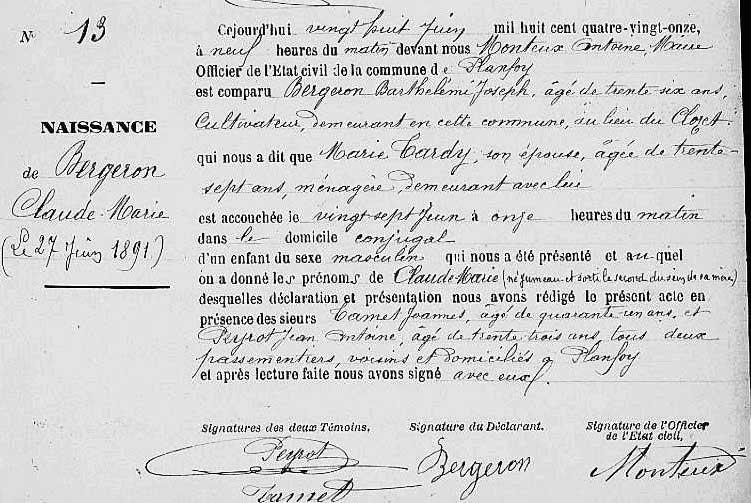 N° 13
NAISSANCE
de Bergeron
Claude-Marie
(Le 27 Juin 1891)
Cejourd'hui vingt huit Juin mil huit cent quatre-vingt-onze,
à neuf heures du matin devant nous Monteux Antoine, Maire
Officier de l'Etat civil de la commune de Planfoy
est comparu Bergeron Barthélémi Joseph, âgé de trente six ans,
Cultivateur, demeurant en cette commune, au lieu du Clozet
qui nous a dit que Marie Tardy, son épouse, âgée de trente-
sept ans, ménagère, demeurant avec lui
est accouchée le vingt sept Juin à onze heures du matin
dans le domicile conjugal
d'un enfant du sexe masculin qui nous a été présenté et auquel
on a donné les prénoms de Claude Marie (né jumeau et sorti le second du sein de sa mère)
desquelles déclaration et présentation nous avons rédigé le présent acte en
présence des sieurs Tamet Joannes, âgé de quarante un ans, et
Peyrot Jean Antoine, âgé de trente trois ans, tous deux
passementiers, voisins et domiciliés à Planfoy
et après lecture faite nous avons signé avec eux.
Signatures des deux Témoins, Signature du Déclarant. Signature de l'Officier
de l'Etat civil,
Peyrot Bergeron Monteux
Tamet